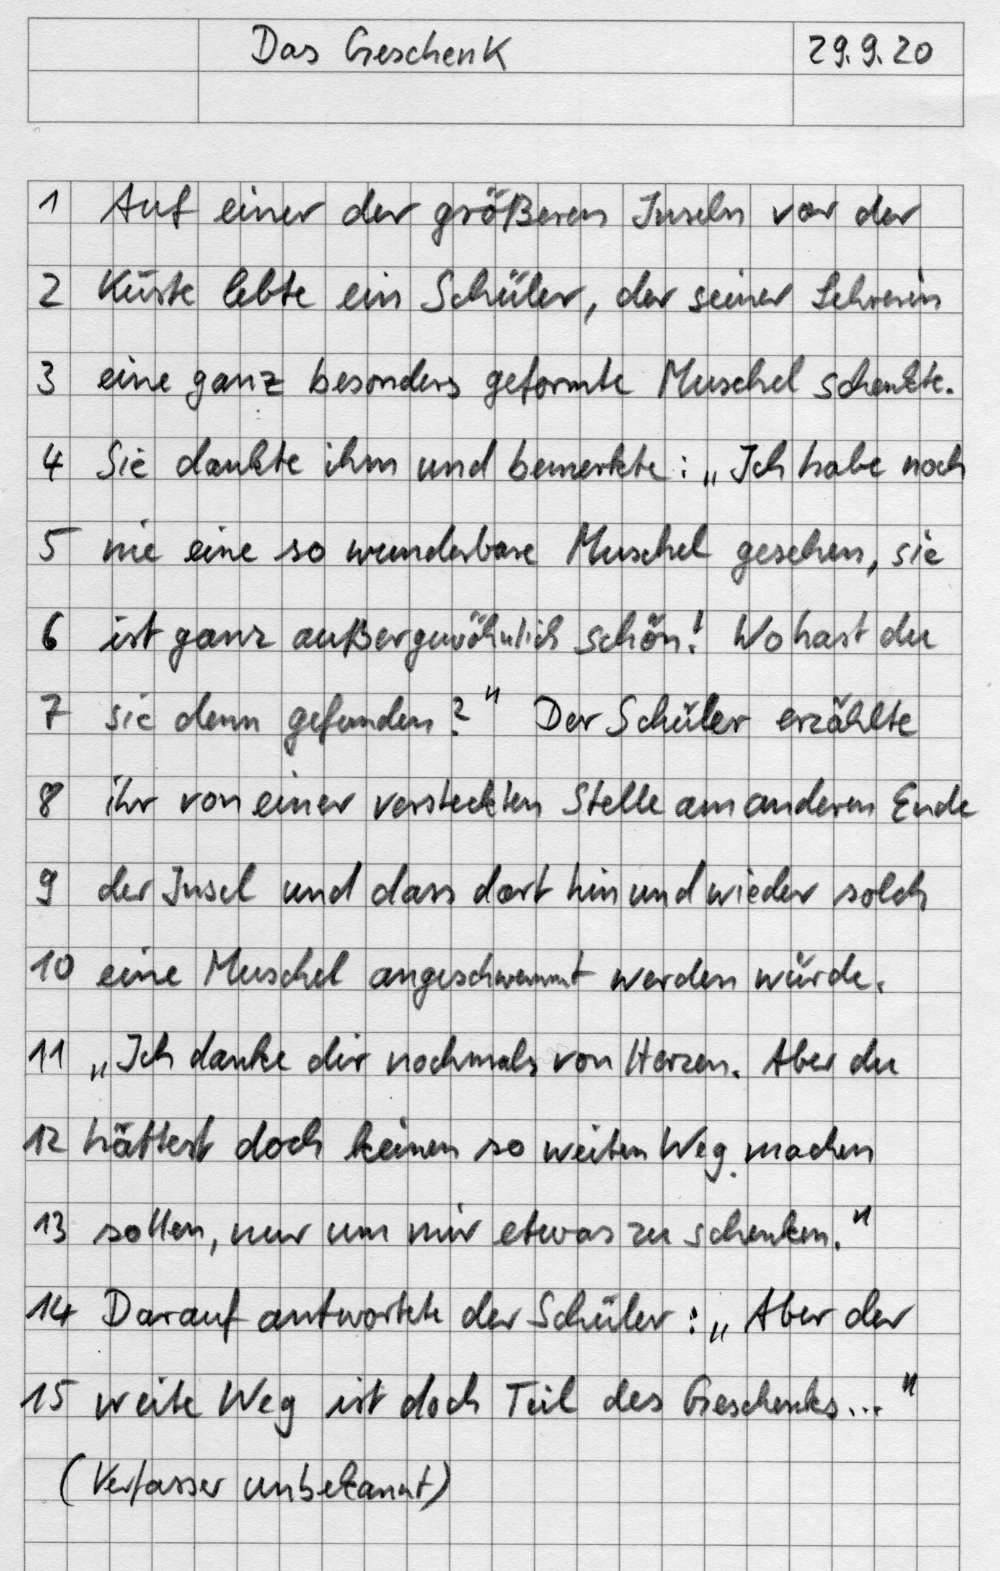 Das Geschenk 29.9.20
1 Auf einer der größeren Inseln vor der
2 Küste lebte ein Schüler, der seiner Lehrerin
3 eine ganz besonders geformte Muschel schenkte.
4 Sie dankte ihm und bemerkte: „Ich habe noch
5 nie eine so wunderbare Muschel gesehen, sie
6 ist ganz außergewöhnlich schön! Wo hast du
7 sie denn gefunden?" Der Schüler erzählte
8 ihr von einer versteckten Stelle am anderen Ende
9 der Insel und dass dort hin und wieder solch
10 eine Muschel angeschwemmt werden würde.
11 „Ich danke dir nochmals von Herzen. Aber du
12 hättest doch keinen so weiten Weg machen
13 sollen, nur um mir etwas zu schenken."
14 Darauf antwortete der Schüler: „Aber der
15 weite Weg ist doch Teil des Geschenks..."
(Verfasser unbekannt)